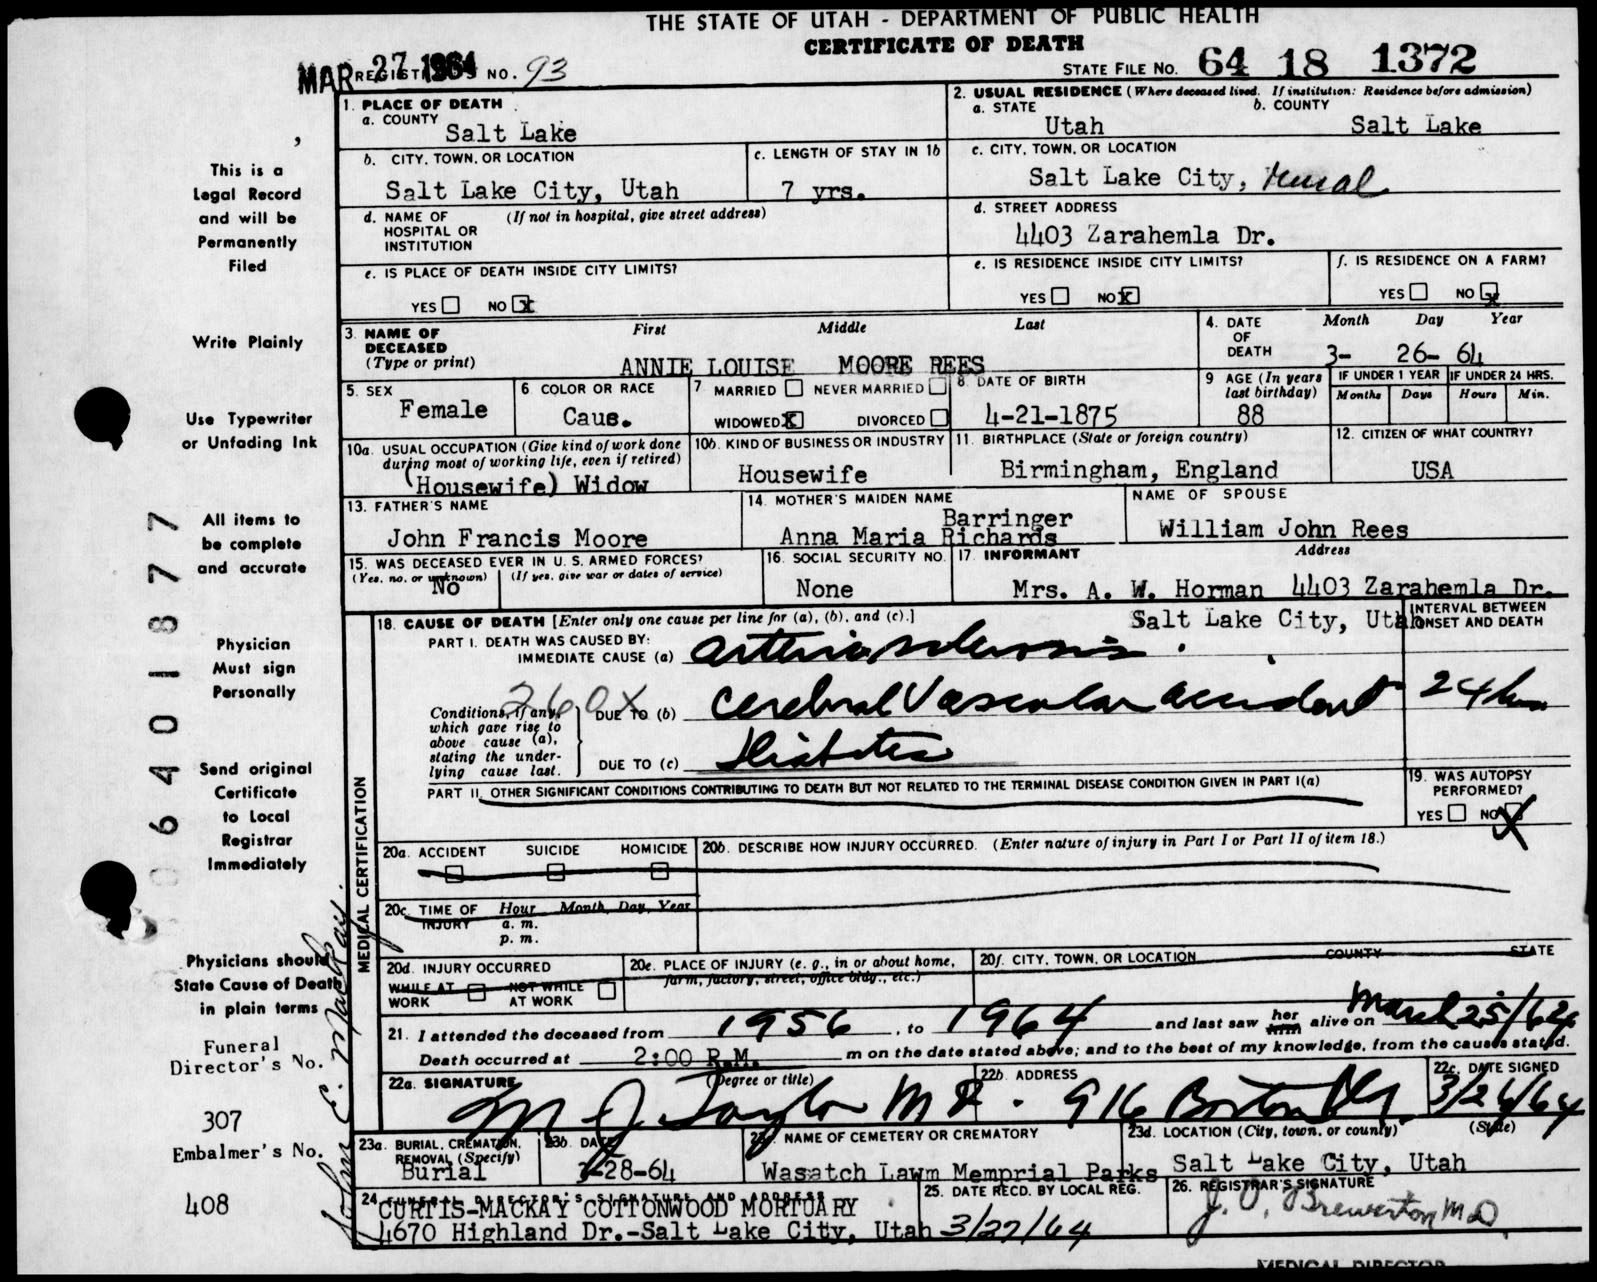 THE STATE OF UTAH - DEPARTMENT OF PUBLIC HEALTH
CERTIFICATE OF DEATH
MAR 27 1964 REGISTRAR'S NO. 93
STATE FILE NO. 64 18 1372
1. PLACE OF DEATH
a. COUNTY
Salt Lake
2. USUAL RESIDENCE (Where deceased lived. If institution: Residence before admission)
a. STATE b. COUNTY
Utah Salt Lake
b. CITY, TOWN, OR LOCATION
Salt Lake City, Utah
c. LENGTH OF STAY IN 1b
7 yrs.
c. CITY, TOWN, OR LOCATION
Salt Lake City, rural
d. NAME OF HOSPITAL OR INSTITUTION (If not in hospital, give street address)
d. STREET ADDRESS
4403 Zarahemla Dr.
e. IS PLACE OF DEATH INSIDE CITY LIMITS?
YES NO X
e. IS RESIDENCE INSIDE CITY LIMITS?
YES NO X
f. IS RESIDENCE ON A FARM?
YES NO X
3. NAME OF DECEASED (Type or print)
First Middle Last
ANNIE LOUISE MOORE REES
4. DATE OF DEATH
Month Day Year
3- 26- 64
5. SEX
Female
6 COLOR OR RACE
Caus.
7 MARRIED NEVER MARRIED
WIDOWED X DIVORCED
8. DATE OF BIRTH
4-21-1875
9 AGE (In years last birthday)
88
IF UNDER 1 YEAR IF UNDER 24 HRS.
Months Days Hours Min.
10a. USUAL OCCUPATION (Give kind of work done during most of working life, even if retired)
(Housewife) Widow
10b. KIND OF BUSINESS OR INDUSTRY
Housewife
11. BIRTHPLACE (State or foreign country)
Birmingham, England
12. CITIZEN OF WHAT COUNTRY?
USA
13. FATHER'S NAME
John Francis Moore
14. MOTHER'S MAIDEN NAME
Barringer
Anna Maria Richards
NAME OF SPOUSE
William John Rees
15. WAS DECEASED EVER IN U. S. ARMED FORCES?
(Yes, no, or unknown) (If yes, give war or dates of service)
No
16. SOCIAL SECURITY NO.
None
17. INFORMANT Address
Mrs. A. W. Horman 4403 Zarahemla Dr.
Salt Lake City, Utah
18. CAUSE OF DEATH [Enter only one cause per line for (a), (b), and (c).]
INTERVAL BETWEEN ONSET AND DEATH
PART I. DEATH WAS CAUSED BY:
IMMEDIATE CAUSE (a) arteriosclerosis.
260X
Conditions, if any, which gave rise to above cause (a), stating the underlying cause last.
DUE TO (b) Cerebral Vascular accident 24 hrs
DUE TO (c) Diabetes
PART II. OTHER SIGNIFICANT CONDITIONS CONTRIBUTING TO DEATH BUT NOT RELATED TO THE TERMINAL DISEASE CONDITION GIVEN IN PART I(a)
19. WAS AUTOPSY PERFORMED?
YES NO X
20a. ACCIDENT SUICIDE HOMICIDE
20b. DESCRIBE HOW INJURY OCCURRED. (Enter nature of injury in Part I or Part II of item 18.)
20c. TIME OF INJURY Hour Month, Day, Year
a. m.
p. m.
20d. INJURY OCCURRED
WHILE AT WORK NOT WHILE AT WORK
20e. PLACE OF INJURY (e. g., in or about home, farm, factory, street, office bldg., etc.)
20f. CITY, TOWN, OR LOCATION COUNTY STATE
21. I attended the deceased from 1956, to 1964 and last saw her him alive on March 25/64
Death occurred at 2:00 P.M. m on the date stated above; and to the best of my knowledge, from the causes stated.
22a. SIGNATURE (Degree or title)
M J Taylor MD.
22b. ADDRESS
916 Boston Bldg.
22c. DATE SIGNED
3/26/64
23a. BURIAL, CREMATION, REMOVAL (Specify)
Burial
23b. DATE
3-28-64
23c. NAME OF CEMETERY OR CREMATORY
Wasatch Lawm Memprial Parks
23d. LOCATION (City, town, or county) (State)
Salt Lake City, Utah
24 FUNERAL DIRECTOR'S SIGNATURE AND ADDRESS
CURTIS-MACKAY COTTONWOOD MORTUARY
4670 Highland Dr.-Salt Lake City, Utah
25. DATE RECD. BY LOCAL REG.
3/27/64
26. REGISTRAR'S SIGNATURE
J. O. Brewerton MD
MEDICAL DIRECTOR
MEDICAL CERTIFICATION
This is a
Legal Record
and will be
Permanently
Filed
Write Plainly
Use Typewriter
or Unfading Ink
All items to
be complete
and accurate
Physician
Must sign
Personally
Send original
Certificate
to Local
Registrar
Immediately
Physicians should
State Cause of Death
in plain terms
Funeral
Director's No.
307
Embalmer's No.
408
John E. Mackay.
06401877